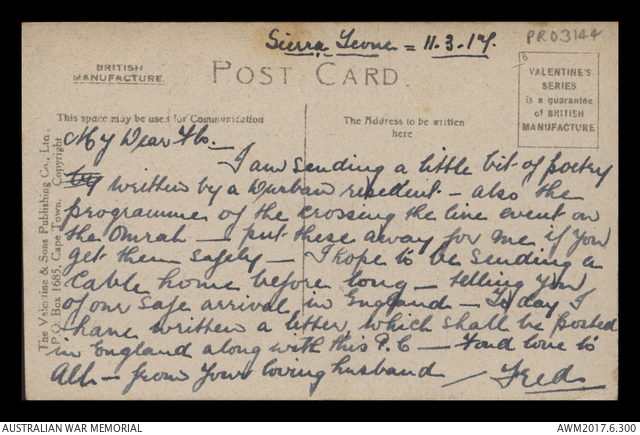 Sierra Leone = 11.3.17.
PRO3144
BRITISH
MANUFACTURE.
POST CARD.
VALENTINE'S
SERIES
is a guarantee
of BRITISH
MANUFACTURE
This space may be used for Communication
The Address to be written
here
The Valentine & Sons Publishing Co., Ltd.,
P.O. Box 1685, Cape Town. Copyright
My Dear Flo. —
I am sending a little bit of poetry
by written by a Durban resedent - also the
programme of the crossing the line event on
the Omrah — put these away for me if you
get them safely — I hope to be sending a
Cable home before long — telling you
of our safe arrival in England — To day I
have written a letter, which shall be posted
in England along with this P.C — Fond love to
All — from your loving husband — Fred.
AUSTRALIAN WAR MEMORIAL
AWM2017.6.300